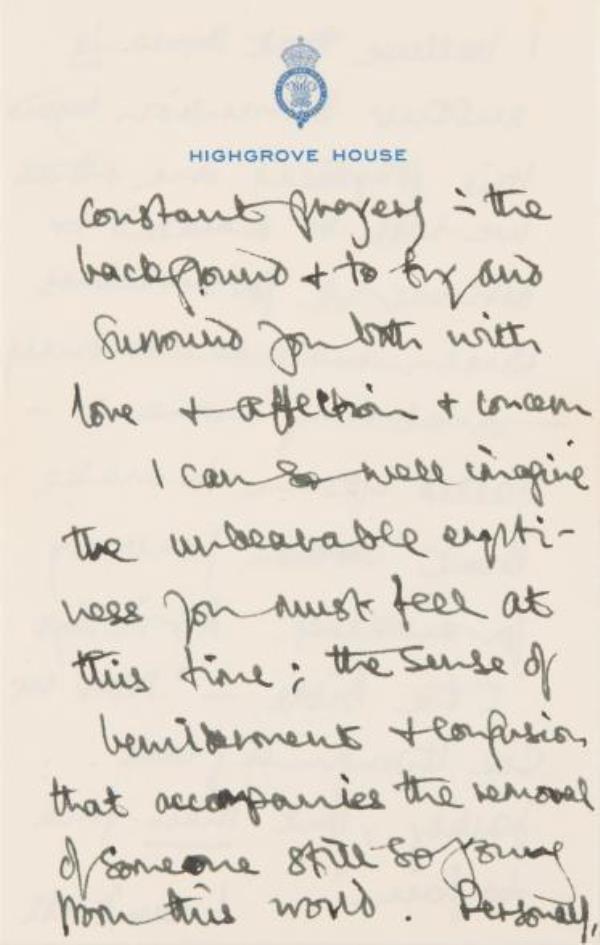 HIGHGROVE HOUSE
constant prayers in the
background + to try and
surround you both with
love + affection + concern
I can so well imagine
the unbearable empti-
ness you must feel at
this time; the sense of
bewilderment + confusion
that accompanies the removal
of someone still so young
from this world. Personally,